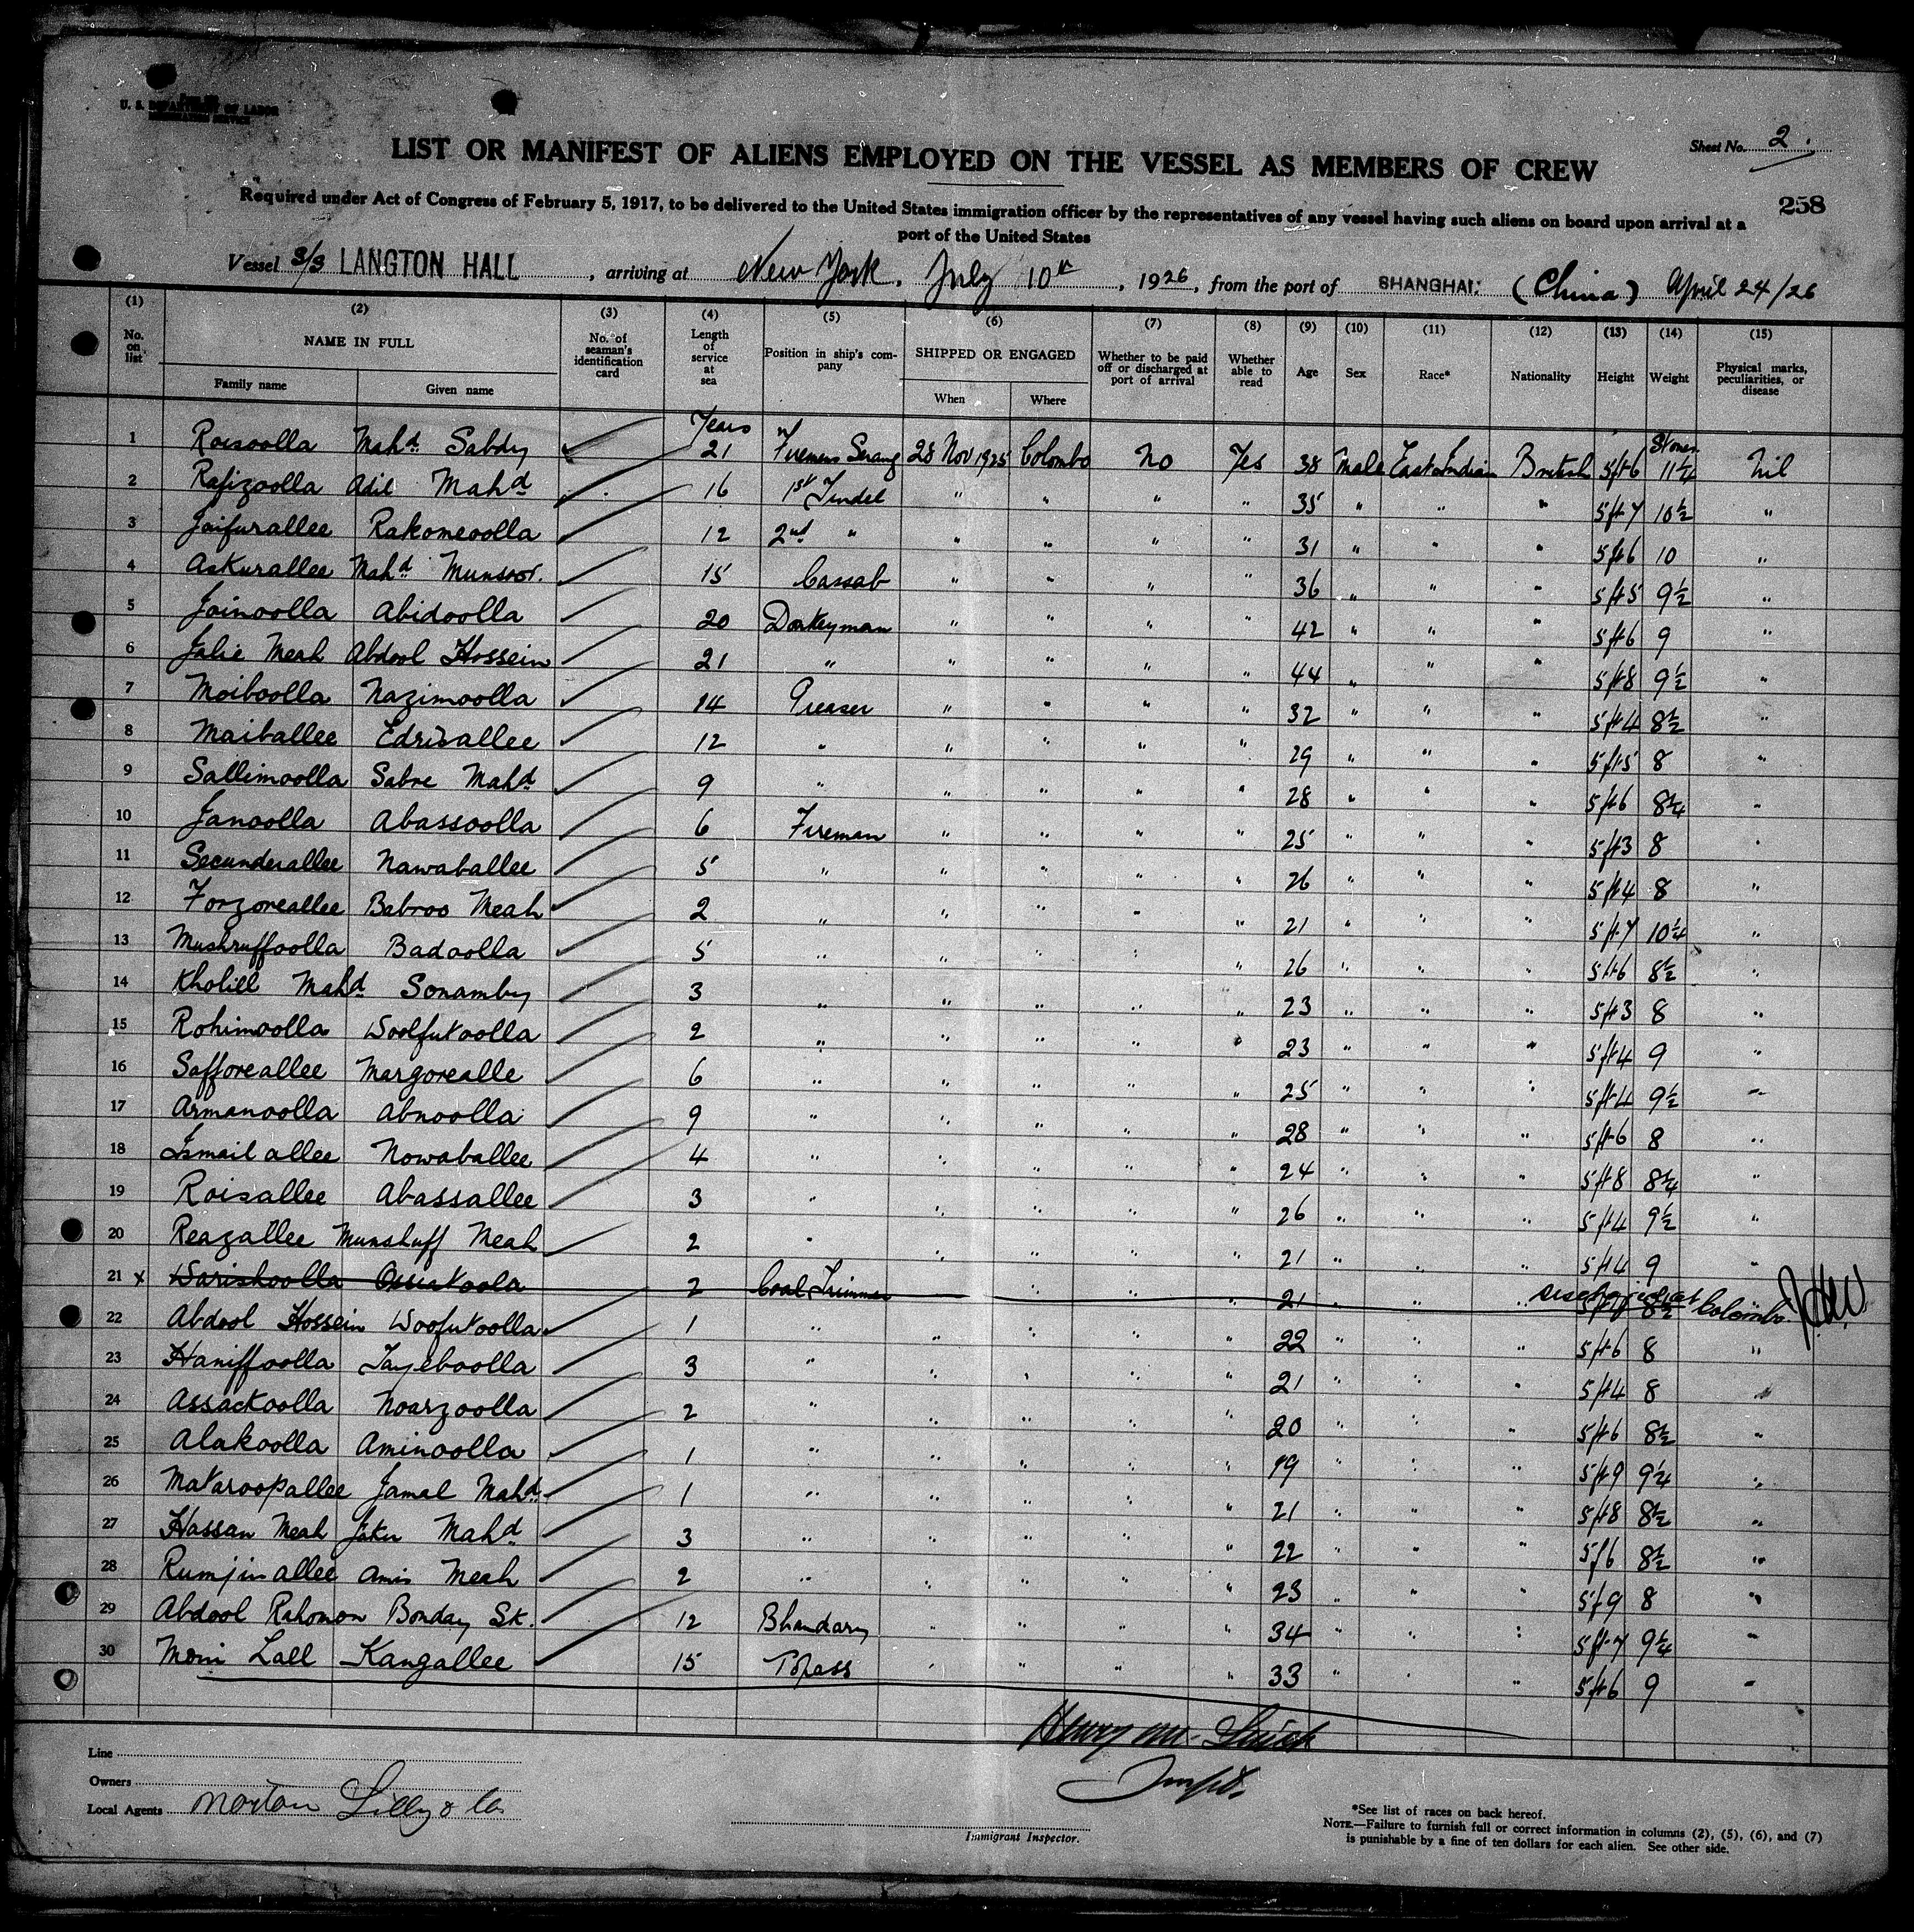 U. S. DEPARTMENT OF LABOR
IMMIGRATION SERVICE
Sheet No. 2.
LIST OR MANIFEST OF ALIENS EMPLOYED ON THE VESSEL AS MEMBERS OF CREW
258
Required under Act of Congress of February 5, 1917, to be delivered to the United States immigration officer by the representatives of any vessel having such aliens on board upon arrival at a
port of the United States
Vessel S/S LANGTON HALL, arriving at New York, July 10th, 1926, from the port of SHANGHAI: (China) April 24/26
(1) (2) (3) (4) (5) (6) (7) (8) (9) (10) (11) (12) (13) (14) (15)
No. on list NAME IN FULL Family name Given name No. of seaman's identification card Length of service at sea Position in ship's company SHIPPED OR ENGAGED When Where Whether to be paid off or discharged at port of arrival Whether able to read Age Sex Race* Nationality Height Weight Physical marks, peculiarities, or disease
Years Stones
1 Roisoolla Mahd. Sabdy 21 Firemens Serang 28 Nov 1925 Colombo No Yes 38 Male East Indian British 5ft6 11 1/4 Nil
2 Rafizoolla Adil Mahd 16 1st Tindel " " " " 35 " " " 5ft7 10 1/2 "
3 Joifurallee Rakomeoolla 12 2nd " " " " " 31 " " " 5ft6 10 "
4 Askurallee Mahd Munsoor. 15 Cassab " " " " 36 " " " 5ft5 9 1/2 "
5 Joinoolla Abidoolla 20 Donkeyman " " " " 42 " " " 5ft6 9 "
6 Jalie Meah Abdool Hossein 21 " " " " " 44 " " " 5ft8 9 1/2 "
7 Moiboolla Nazimoolla 14 Greaser " " " " 32 " " " 5ft4 8 1/2 "
8 Maiballee Edrisallee 12 " " " " " 29 " " " 5ft5 8 "
9 Sallimoolla Sabre Mahd 9 " " " " " 28 " " " 5ft6 8 1/4 "
10 Janoolla Abassoolla 6 Fireman " " " " 25 " " " 5ft3 8 "
11 Secunderallee Nawaballee 5 " " " " " 26 " " " 5ft4 8 "
12 Forzoreallee Babroo Meah 2 " " " " " 21 " " " 5ft7 10 1/4 "
13 Mushruffoolla Badoolla 5 " " " " " 26 " " " 5ft6 8 1/2 "
14 Kholill Mahd Sonamby 3 " " " " " 23 " " " 5ft3 8 "
15 Rohimoolla Woolfutoolla 2 " " " " " 23 " " " 5ft4 9 "
16 Safforeallee Margorealle 6 " " " " " 25 " " " 5ft4 9 1/2 "
17 Armanoolla Abnoolla 9 " " " " " 28 " " " 5ft6 8 "
18 Ismail allee Nowaballee 4 " " " " " 24 " " " 5ft8 8 1/4 "
19 Roisallee Abassallee 3 " " " " " 26 " " " 5ft4 9 1/2 "
20 Reazallee Munshuff Meah 2 " " " " " 21 " " " 5ft4 9 "
21 x Warishoolla Ossiatoola 2 Coal Trimmer 21 8 1/2 discharged at Colombo
22 Abdool Hossein Woofutoolla 1 " " " " " 22 " " " 5ft6 8 "
23 Haniffoolla Tayeboolla 3 " " " " " 21 " " " 5ft4 8 "
24 Assackoolla Noarzoolla 2 " " " " " 20 " " " 5ft6 8 1/2 "
25 Alakoolla Aminoolla 1 " " " " " 19 " " " 5ft9 9 1/4 "
26 Mataroopallee Jamal Mahd. 1 " " " " " 21 " " " 5ft8 8 1/2 "
27 Hassan Meah Jaku Mahd 3 " " " " " 22 " " " 5f6 8 1/2 "
28 Rumjinallee Amis Meah 2 " " " " " 23 " " " 5f9 8 "
29 Abdool Rahomon Bonday Sk. 12 Bhandary " " " " 34 " " " 5ft7 9 1/4 "
30 Moni Lall Kangallee 15 Topass " " " " 33 " " " 5ft6 9 "
Line
Owners
Local Agents Norton Lilly & Co
Immigrant Inspector.
*See list of races on back hereof.
NOTE.—Failure to furnish full or correct information in columns (2), (5), (6), and (7)
is punishable by a fine of ten dollars for each alien. See other side.